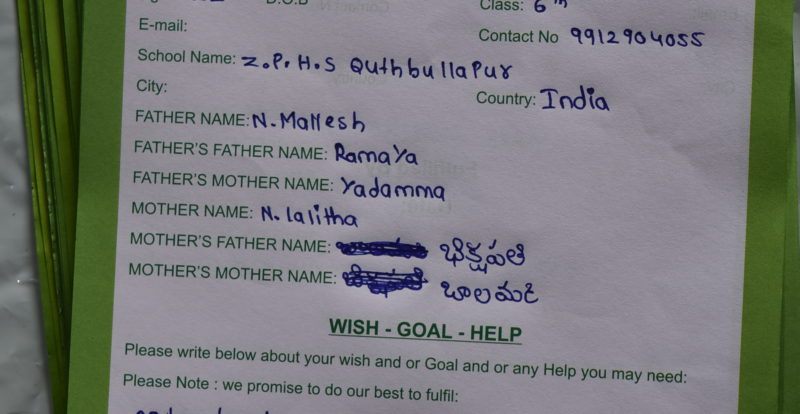 Class: 6th
E-mail:
Contact No 9912904055
School Name: Z.P.H.S Quthbullapur
City:
Country: India
FATHER NAME: N. Mallesh
FATHER'S FATHER NAME: Ramaya
FATHER'S MOTHER NAME: Yadamma
MOTHER NAME: N. lalitha
MOTHER'S FATHER NAME: భిక్షపతి
MOTHER'S MOTHER NAME: బాలమణి
WISH - GOAL - HELP
Please write below about your wish and or Goal and or any Help you may need:
Please Note : we promise to do our best to fulfil: